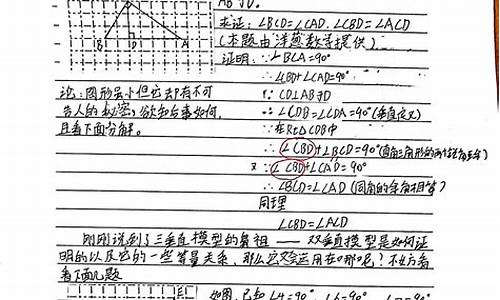 AB于D.
求证:∠BCD=∠CAD.∠CBD=∠ACD
(本题由洋葱数学提供)
证明:∵∠BCA=90°
∴∠CBD+∠CAD=90°
B D A
论:图形虽小但它却有不可
告人的秘密,欲知后事如何,
且看下面分解。
∵CD⊥AB于D
∴∠CDB=∠CDA=90°(垂直定义)
∴在Rt△CDB中
∴∠CBD+∠BCD=90°(直角三角形的两个锐角互余)
又∵∠CBD+∠CAD=90°
∴∠BCD=∠CAD(同角的余角相等)
同理
∠CBD=∠ACD
刚刚说到了三垂直模型的鼻祖——双垂直模型是如何证
明的以及它的一些等量关系,那么它又会运用在哪呢?不妨看
看下面几题
如图,已知∠A=90°